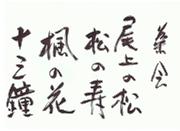 葉会
尾上の松
松の寿
楓の花
十三鐘